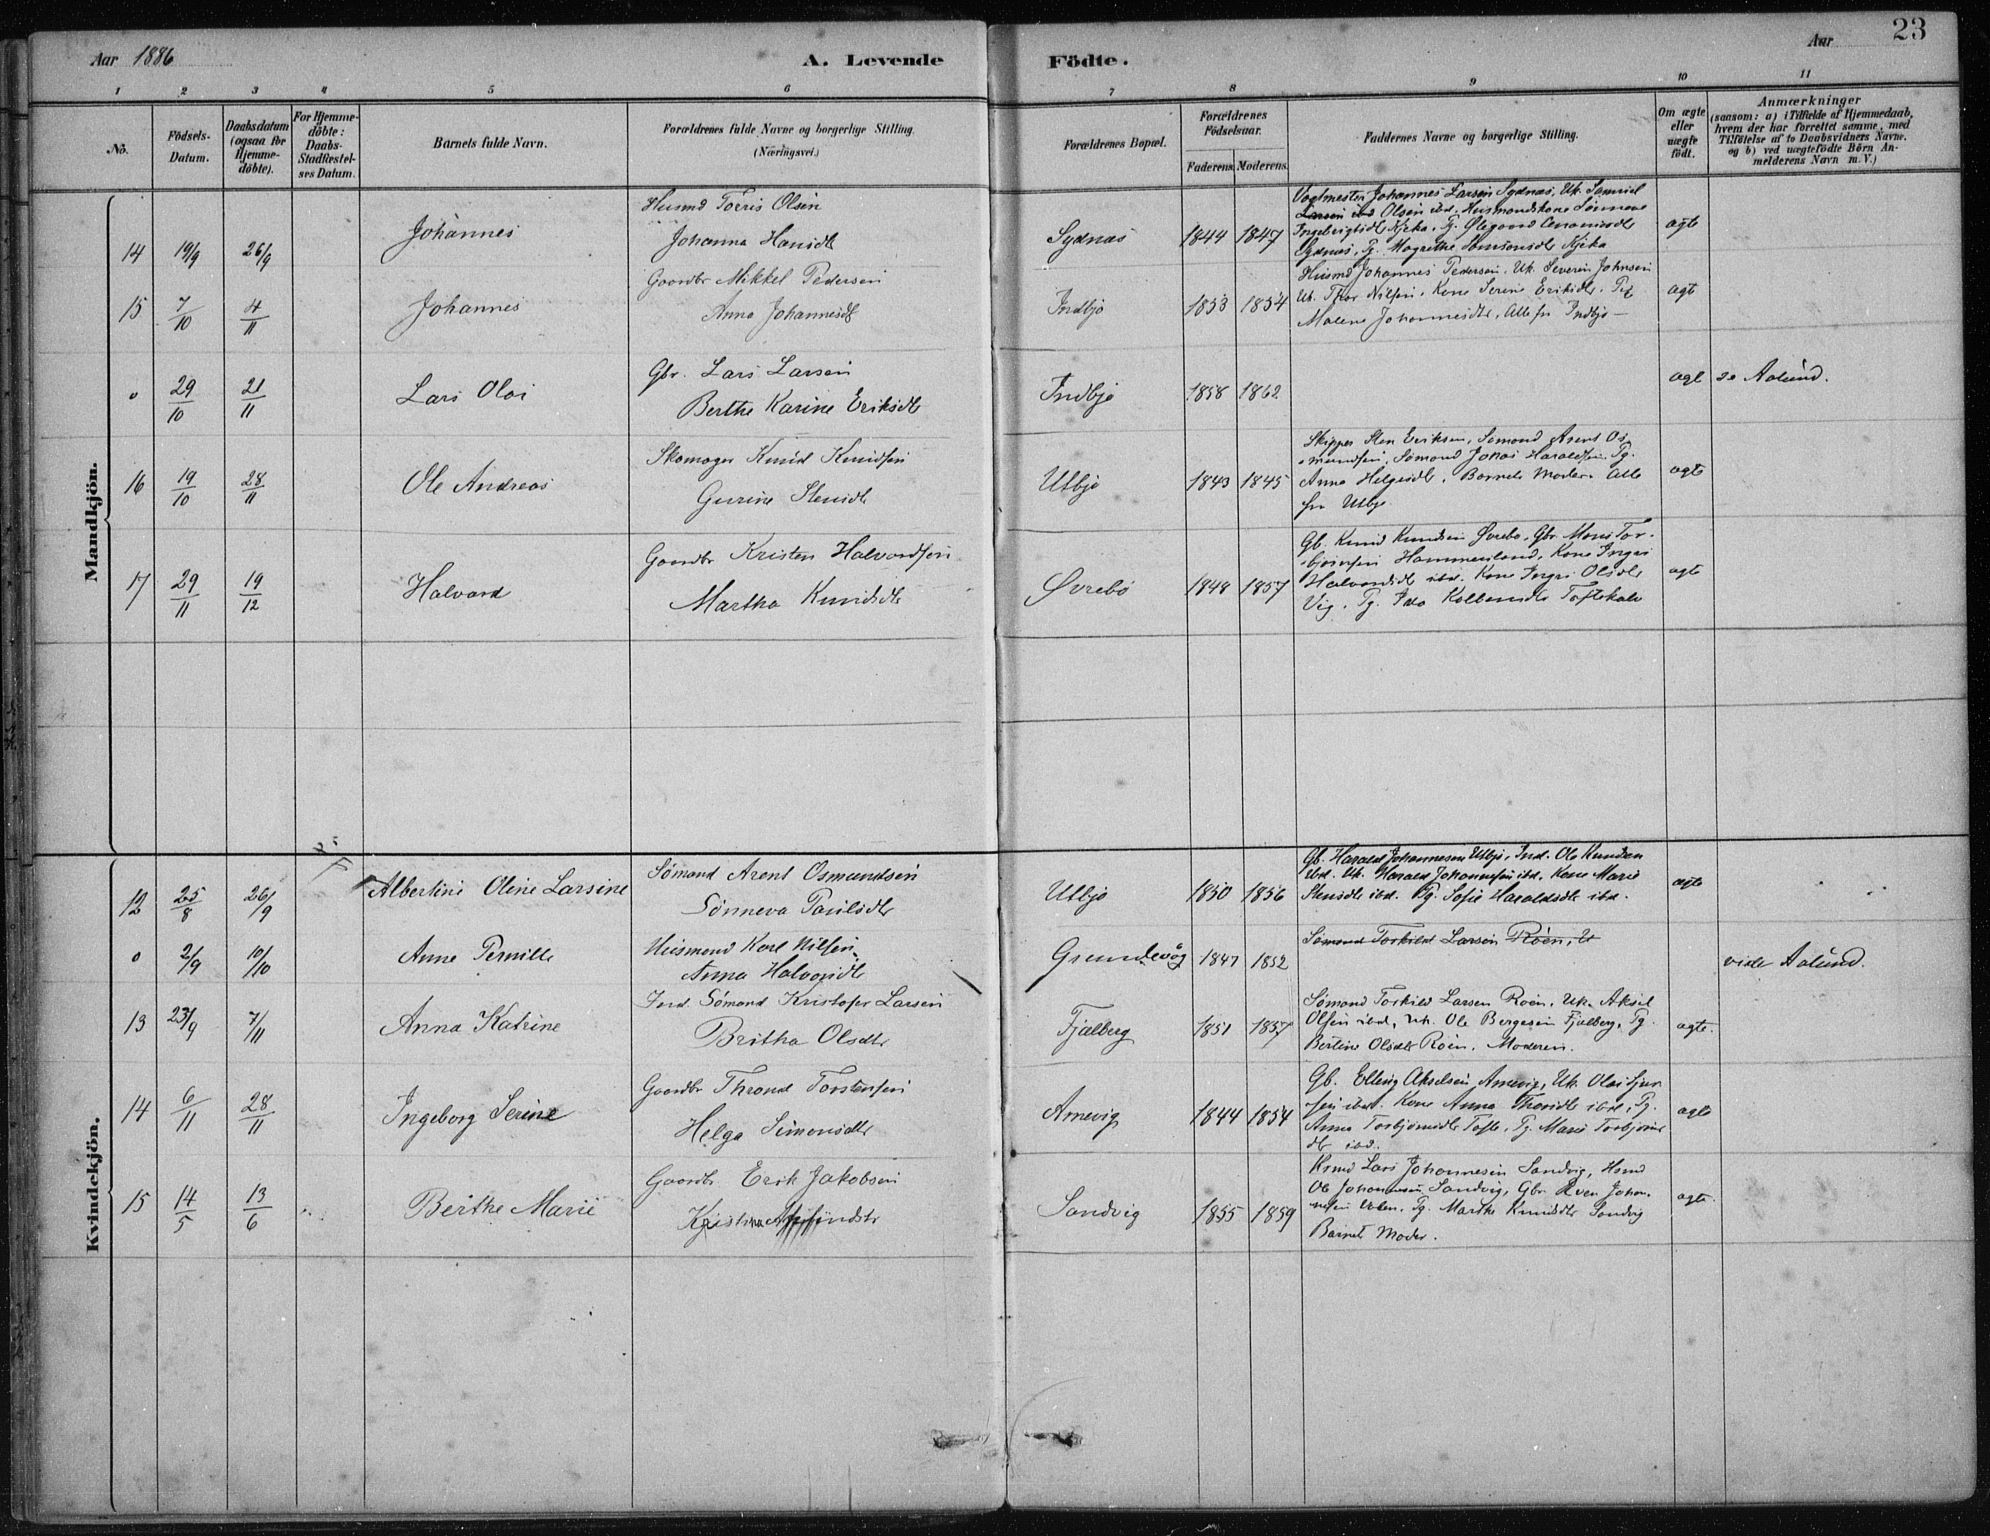 Aar 1886
A. Levende
Födte.
Aar
23
1 2 3 4 5 6 7 8 9 10 11
No.
Födsels-
Datum.
Daabsdatum
(ogsaa for
Hjemme-
döbte).
For Hjemme-
döbte:
Daabs-
Stadfæstel-
ses Datum.
Barnets fulde Navn.
Forældrenes fulde Navne og borgerlige Stilling.
(Næringsvei.)
Forældrenes Bopæl.
Forældrenes
Födselsaar.
Faderens. Moderens.
Faddernes Navne og borgerlige Stilling.
Om ægte
eller
uægte
födt.
Anmærkninger
(saasom: a) i Tilfælde af Hjemmedaab,
hvem der har forrettet samme, med
Tilföielse af to Daabsvidners Navne.
og b) ved uægtefödte Börn An-
melderens Navn m. V.)
Mandkjön.
14 19/9 26/9
Johannes
Husmd Torris Olsen
Johanna Hansdt
Sydnæs 1844 1847
Vogtmester Johannes Larsen Sydnæs, Uk. Samuel
Larsen ibd Olsen ibd, Husmandskone Sønneva
Kjeka, Pg.
Sydnæs, Pg. Magrethe Kjeka
ægte
15 7/10 4/11
Johannes
Gaardbr Mikkel Pedersen
Anna Johannesdt
Indbjo 1853 1854
Husmd Johannes Pedersen, Uk. Severin Johnsen
Uk. Thor Nilsen, Kone Serine Eriksdt, Pg
Malene Johannesdtr, Alle fr Indbjo
ægt
0 29/10 21/11
Lars Olai
Gbr. Lars Larsen
Berthe Karine Eriksdt
Indbjo 1858 1862
ægt
se Aalund.
16 19/10 28/11
Ole Andreas
Skomager Knud Knudsen
Gurine Stensdt
Utbjo 1843 1845
Skipper Sten Eriksen, Sømand Arent Os-
mundsen, Sømand Jonas Haraldsen, Pg.
Anna Helgesdt, Barnets Moder. Alle
fra Utbjo
ægte
17 29/11 19/12
Halvard
Gaardbr Kristen Halvardsen
Martha Knudsdt
Øvrebø 1848 1857
Gb. Knud Knudsen Øvrebø, Gbr Mons Tor-
bjørnsen Hammersland, Kone Ingri
Halvardsdt ibd. Kone Ingri Olsdtr
Vig. Pg. Ida Kolbensdt Toftekalv
ægte
Kvindekjön.
12 25/8 26/9
Albertine Oline Larsine
Sømand Arent Osmundsen
Sønneva Paulsdtr
Utbjo 1850 1856
Gb. Harald Johannesen Utbjo, Ind. Ole Knudsen
ibd. Uk. Harald Johannesen ibd, Kone Marie
Stensdtr ibd. Pg. Sofie Haraldsdtr ibd.
ægte
0 2/9 10/10
Anne Pernille
Husmand Karl Nilsen
Anna Halvorsdt
Grundevåg 1847 1852
Sømand Torkild Larsen Røen, U
vide Aalund.
13 23/9 7/11
Anna Katrine
Ind. Sømand Kristofer Larsen
Britha Olsdtr
Fjælberg 1851 1857
Sømand Torkild Larsen Røen, Uk. Aksel
Olsen ibd, Uk. Ole Bergesen Fjælberg, Pg.
Bertine Olsdtr Røen, Moderen.
ægte.
14 6/11 28/11
Ingeborg Serine
Gaardbr Thrond Torstensen
Helga Simonsdtr
Arnevig 1844 1854
Gb. Elling Akselsen Arnevig, Uk. Olai Sjur
sen ibd. Kone Anna Thorsdtr ibd, Pg.
Anna Torbjørnsdtr Tofte, Pg. Marie Torbjørns
dtr ibd.
ægte
15 14/5 13/6
Berthe Marie
Gaardbr Erik Jakobsen
Kristina
Sandvig 1855 1859
Husmd Lars Johannesen Sandvig, Husmd
Ole Johannesen Sandvig, Gbr Johan-
nesen Pg. Marthe Knudsdtr Sandvig
Barnets Moder.
ægte.